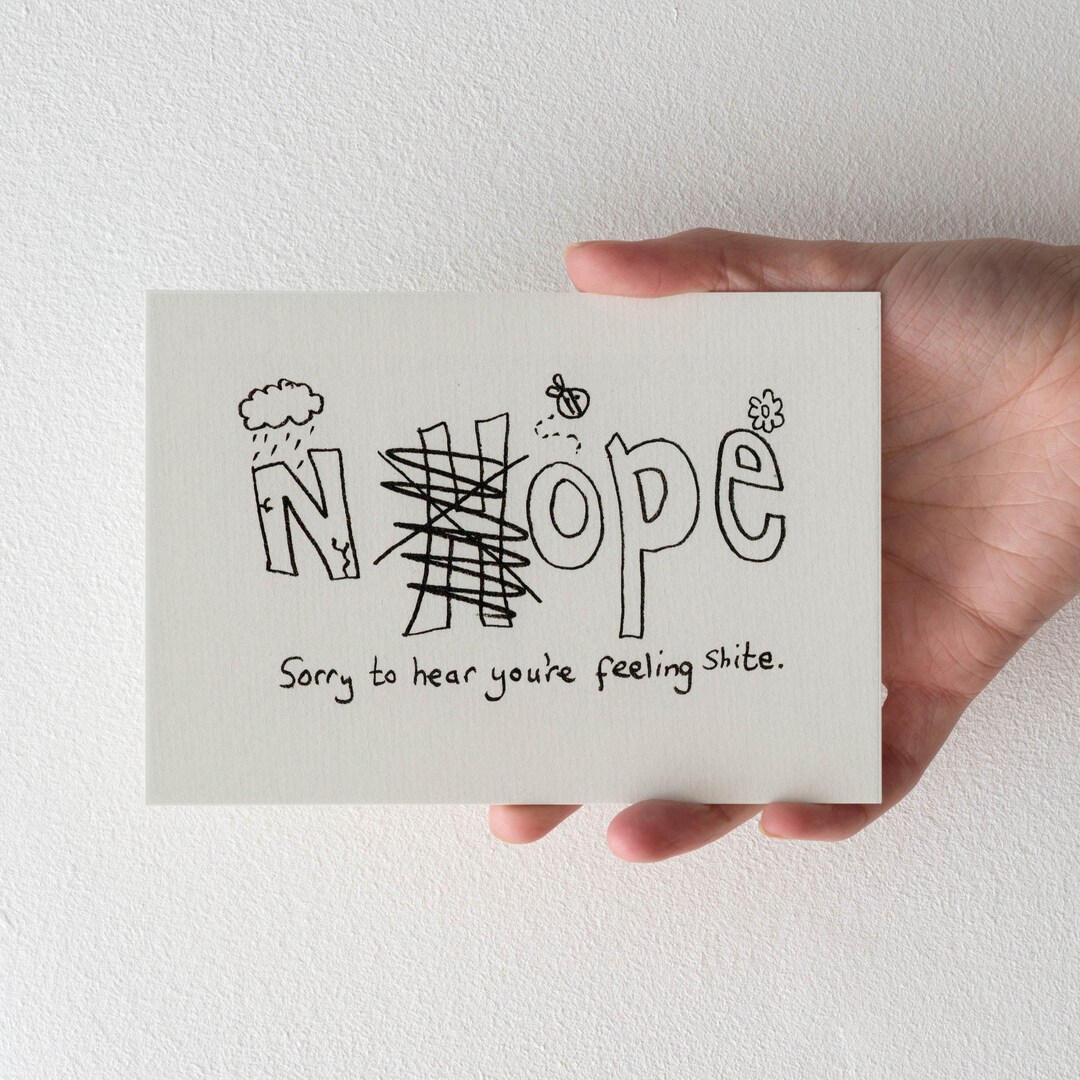 N Hope
Sorry to hear you're feeling shite.